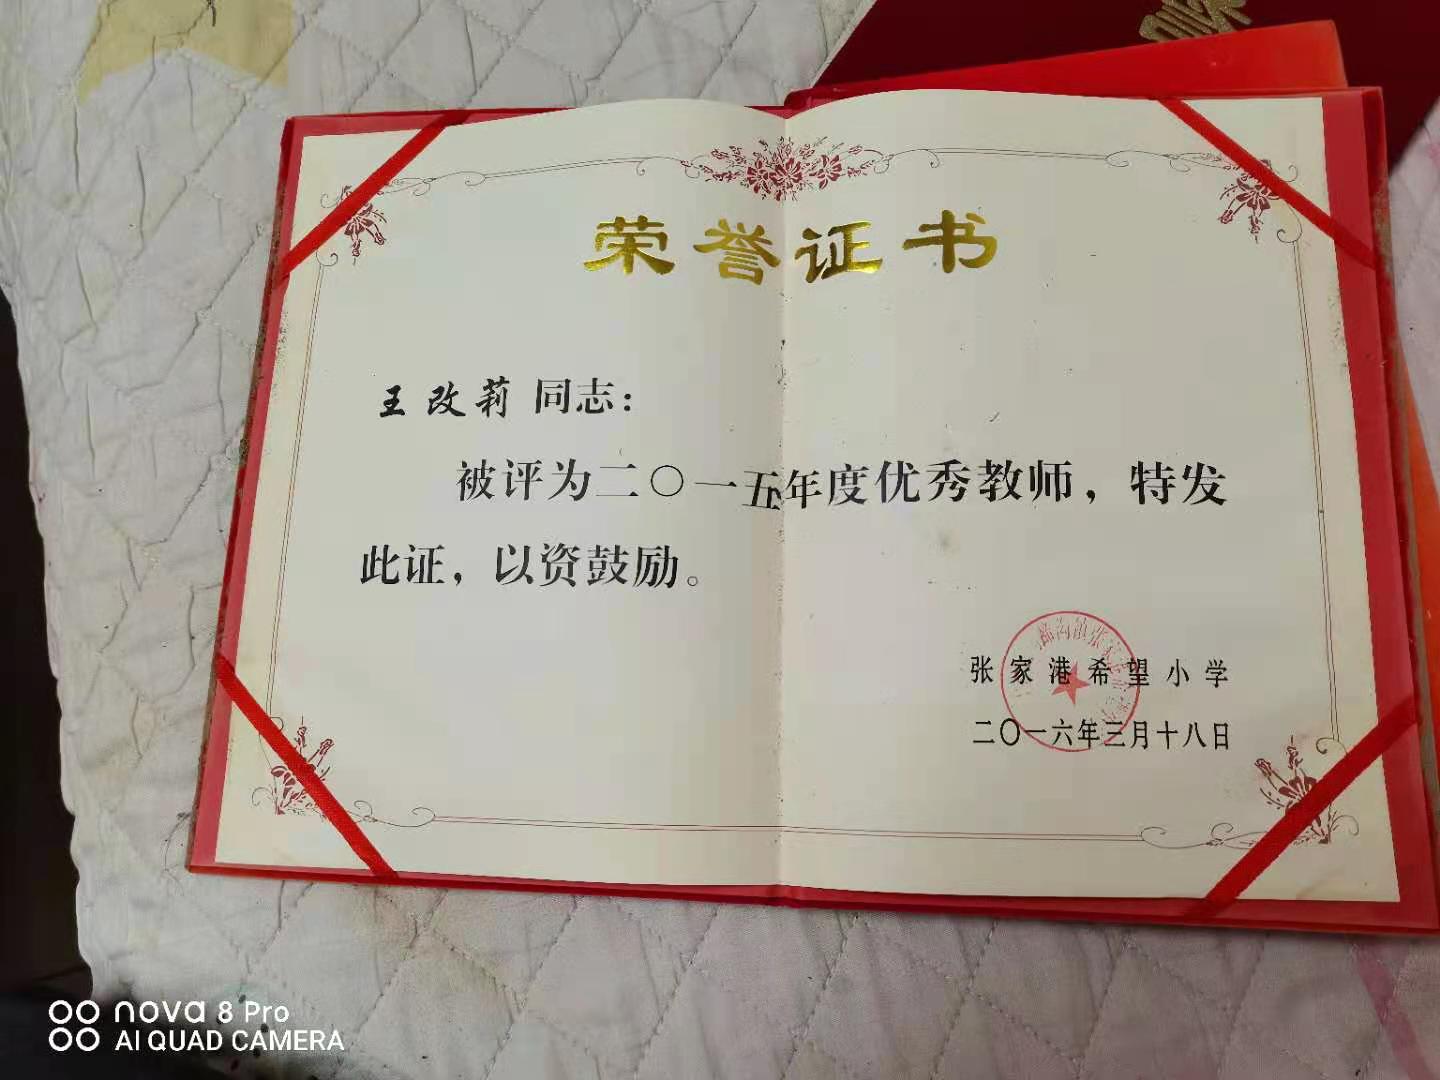 荣誉证书
王改莉 同志：
被评为二〇一五年度优秀教师，特发
此证，以资鼓励。
张家港希望小学
二〇一六年三月十八日
nova 8 Pro
AI QUAD CAMERA